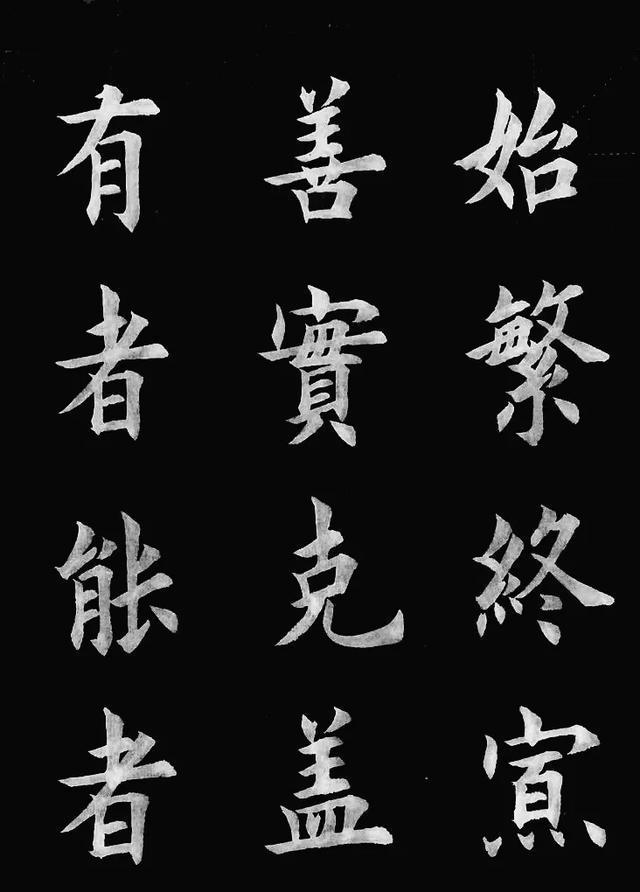 有善始
者實繁
能克終
者盖寡